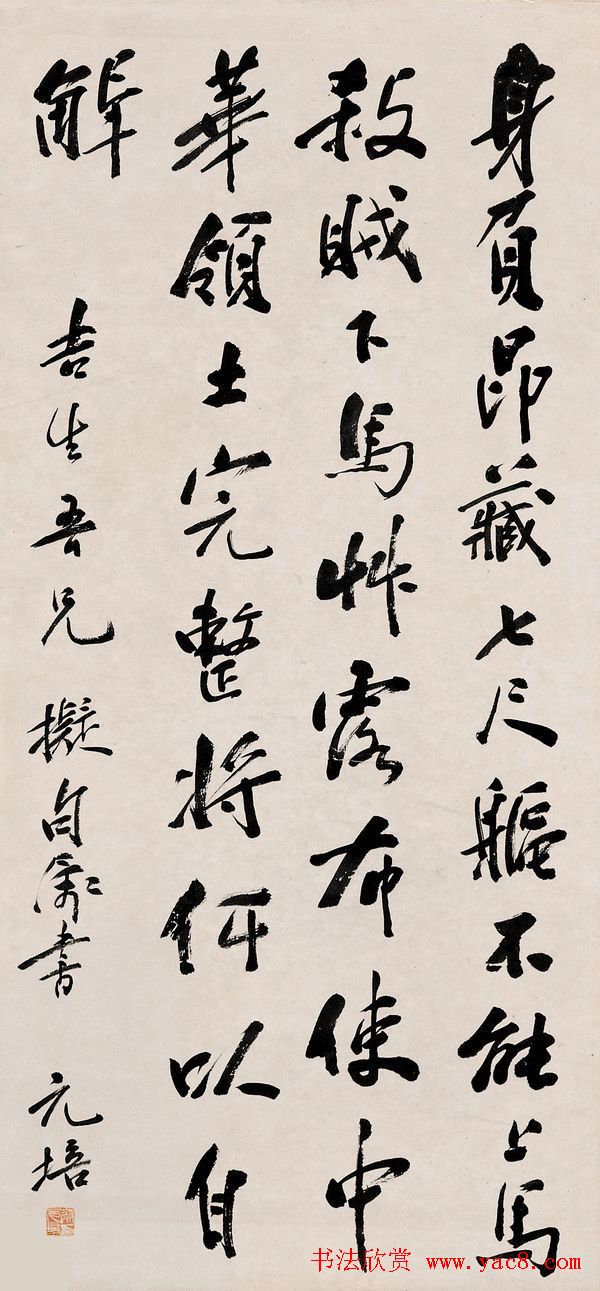 身負昂藏七尺軀不能上馬
殺賊下馬艸露布使中
華領土完整將何以自
解
吉生吾兄 擬句屬書 元培
书法欣赏 www.yac8.com